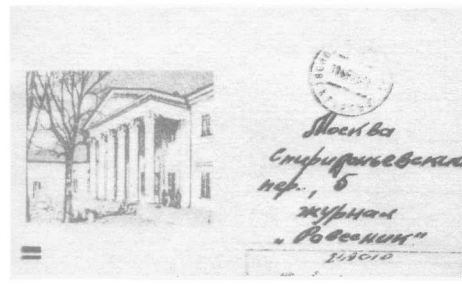 Москва
Спиридоньевский
пер., 5
журнал
„Ровесник"